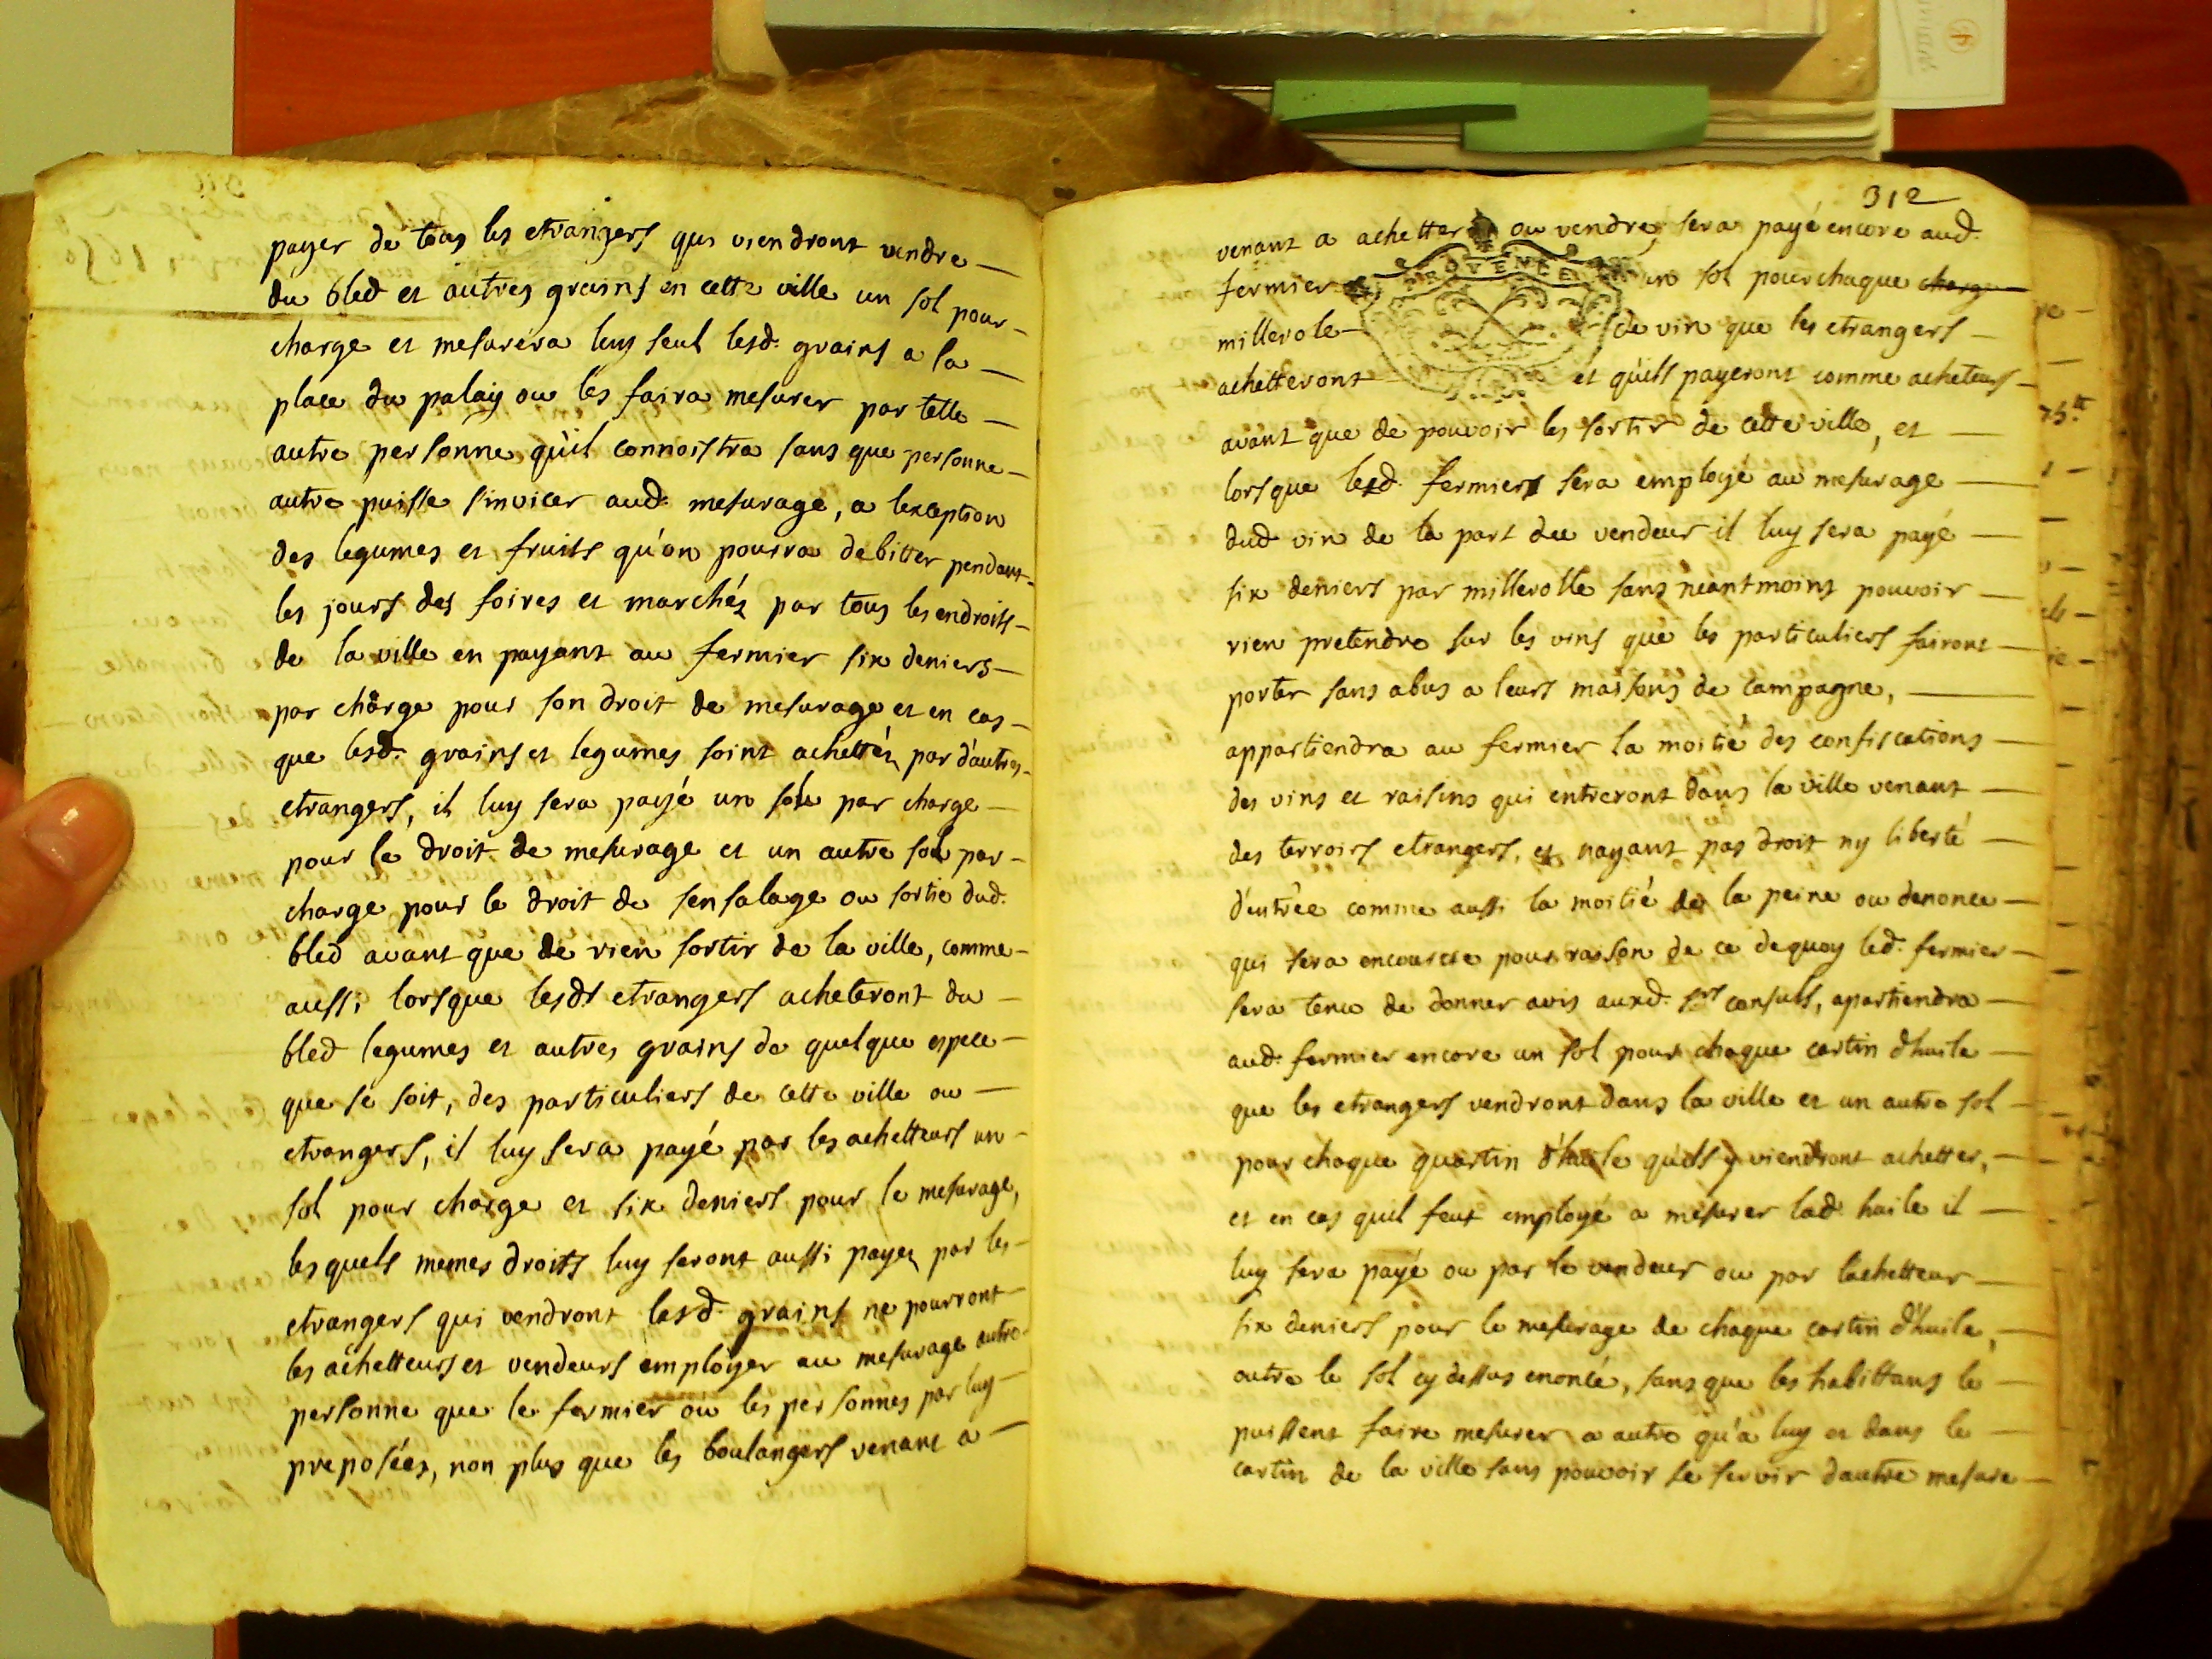 payer de tous les etrangers qui viendront vendre
du bled et autres grains en cette ville un sol pour
charge et mesurera luy seul lesd. grains a la
place du palais ou les faira mesurer par telle
autre personne qu'il connoistra sans que personne
autre puisse s'invicer aud. mesurage, a lexception
des legumes et fruits qu'on pourra debitter pendant
les jours des foires et marchés par tous les endroits
de la ville en payant au fermier six deniers
par charge pour son droit de mesurage et en cas
que lesd. grains et legumes soint achettés par d'autres
etrangers, il luy sera payé un sol par charge
pour le droit de mesurage et un autre sol par
charge pour le droit de sensalage ou sortie dud.
bled avant que de rien sortir de la ville, comme
aussi lorsque lesds etrangers acheteront du
bled legumes et autres grains de quelque espece
que se soit, des particuliers de cette ville ou
etrangers, il luy sera payé par les achetteurs un
sol pour charge et six deniers pour le mesurage,
lesquels memes droits luy seront aussi payes par les
etrangers qui vendront lesd. grains ne pourront
les achetteurs et vendeurs employer au mesurage autre
personne que le fermier ou les personnes par luy
preposées, non plus que les boulangers venant a
312
venant a achetter ou vendre, sera payé encore aud.
fermier un sol pour chaque charge
PROVENCE
millerole de vin que les etrangers
achetteront et qu'ils payeront comme acheteurs
avant que de pouvoir les sortir de cette ville, et
lorsque led. fermier sera employé au mesurage
dud. vin de la part du vendeur il luy sera payé
six deniers par millerolle sans neantmoins pouvoir
rien pretendre sur les vins que les particuliers fairont
porter sans abus a leurs maisons de campagne,
appartiendra au fermier la moitié des confiscations
des vins et raisins qui entreront dans la ville venant
des terroirs etrangers, et nayant pas droit ny liberté
d'entrée comme aussi la moitié de la peine ou denonce
qui sera encourue pour raison de ce dequoy led. fermier
sera tenu de donner avis auxd. srs consuls, apartiendra
aud. fermier encore un sol pour chaque cartin d'huile
que les etrangers vendront dans la ville et un autre sol
pour chaque quartin d'huile qu'ils y viendront achetter,
et en cas quil feut employé a mesurer lad. huile il
luy sera payé ou par le vendeur ou par lachetteur
six deniers pour le mesurage de chaque cartin d'huile,
outre le sol cy dessus enoncé, sans que les habittans le
puissent faire mesurer a autre qu'a luy et dans le
cartin de la ville sans pouvoir se servir dautre mesure